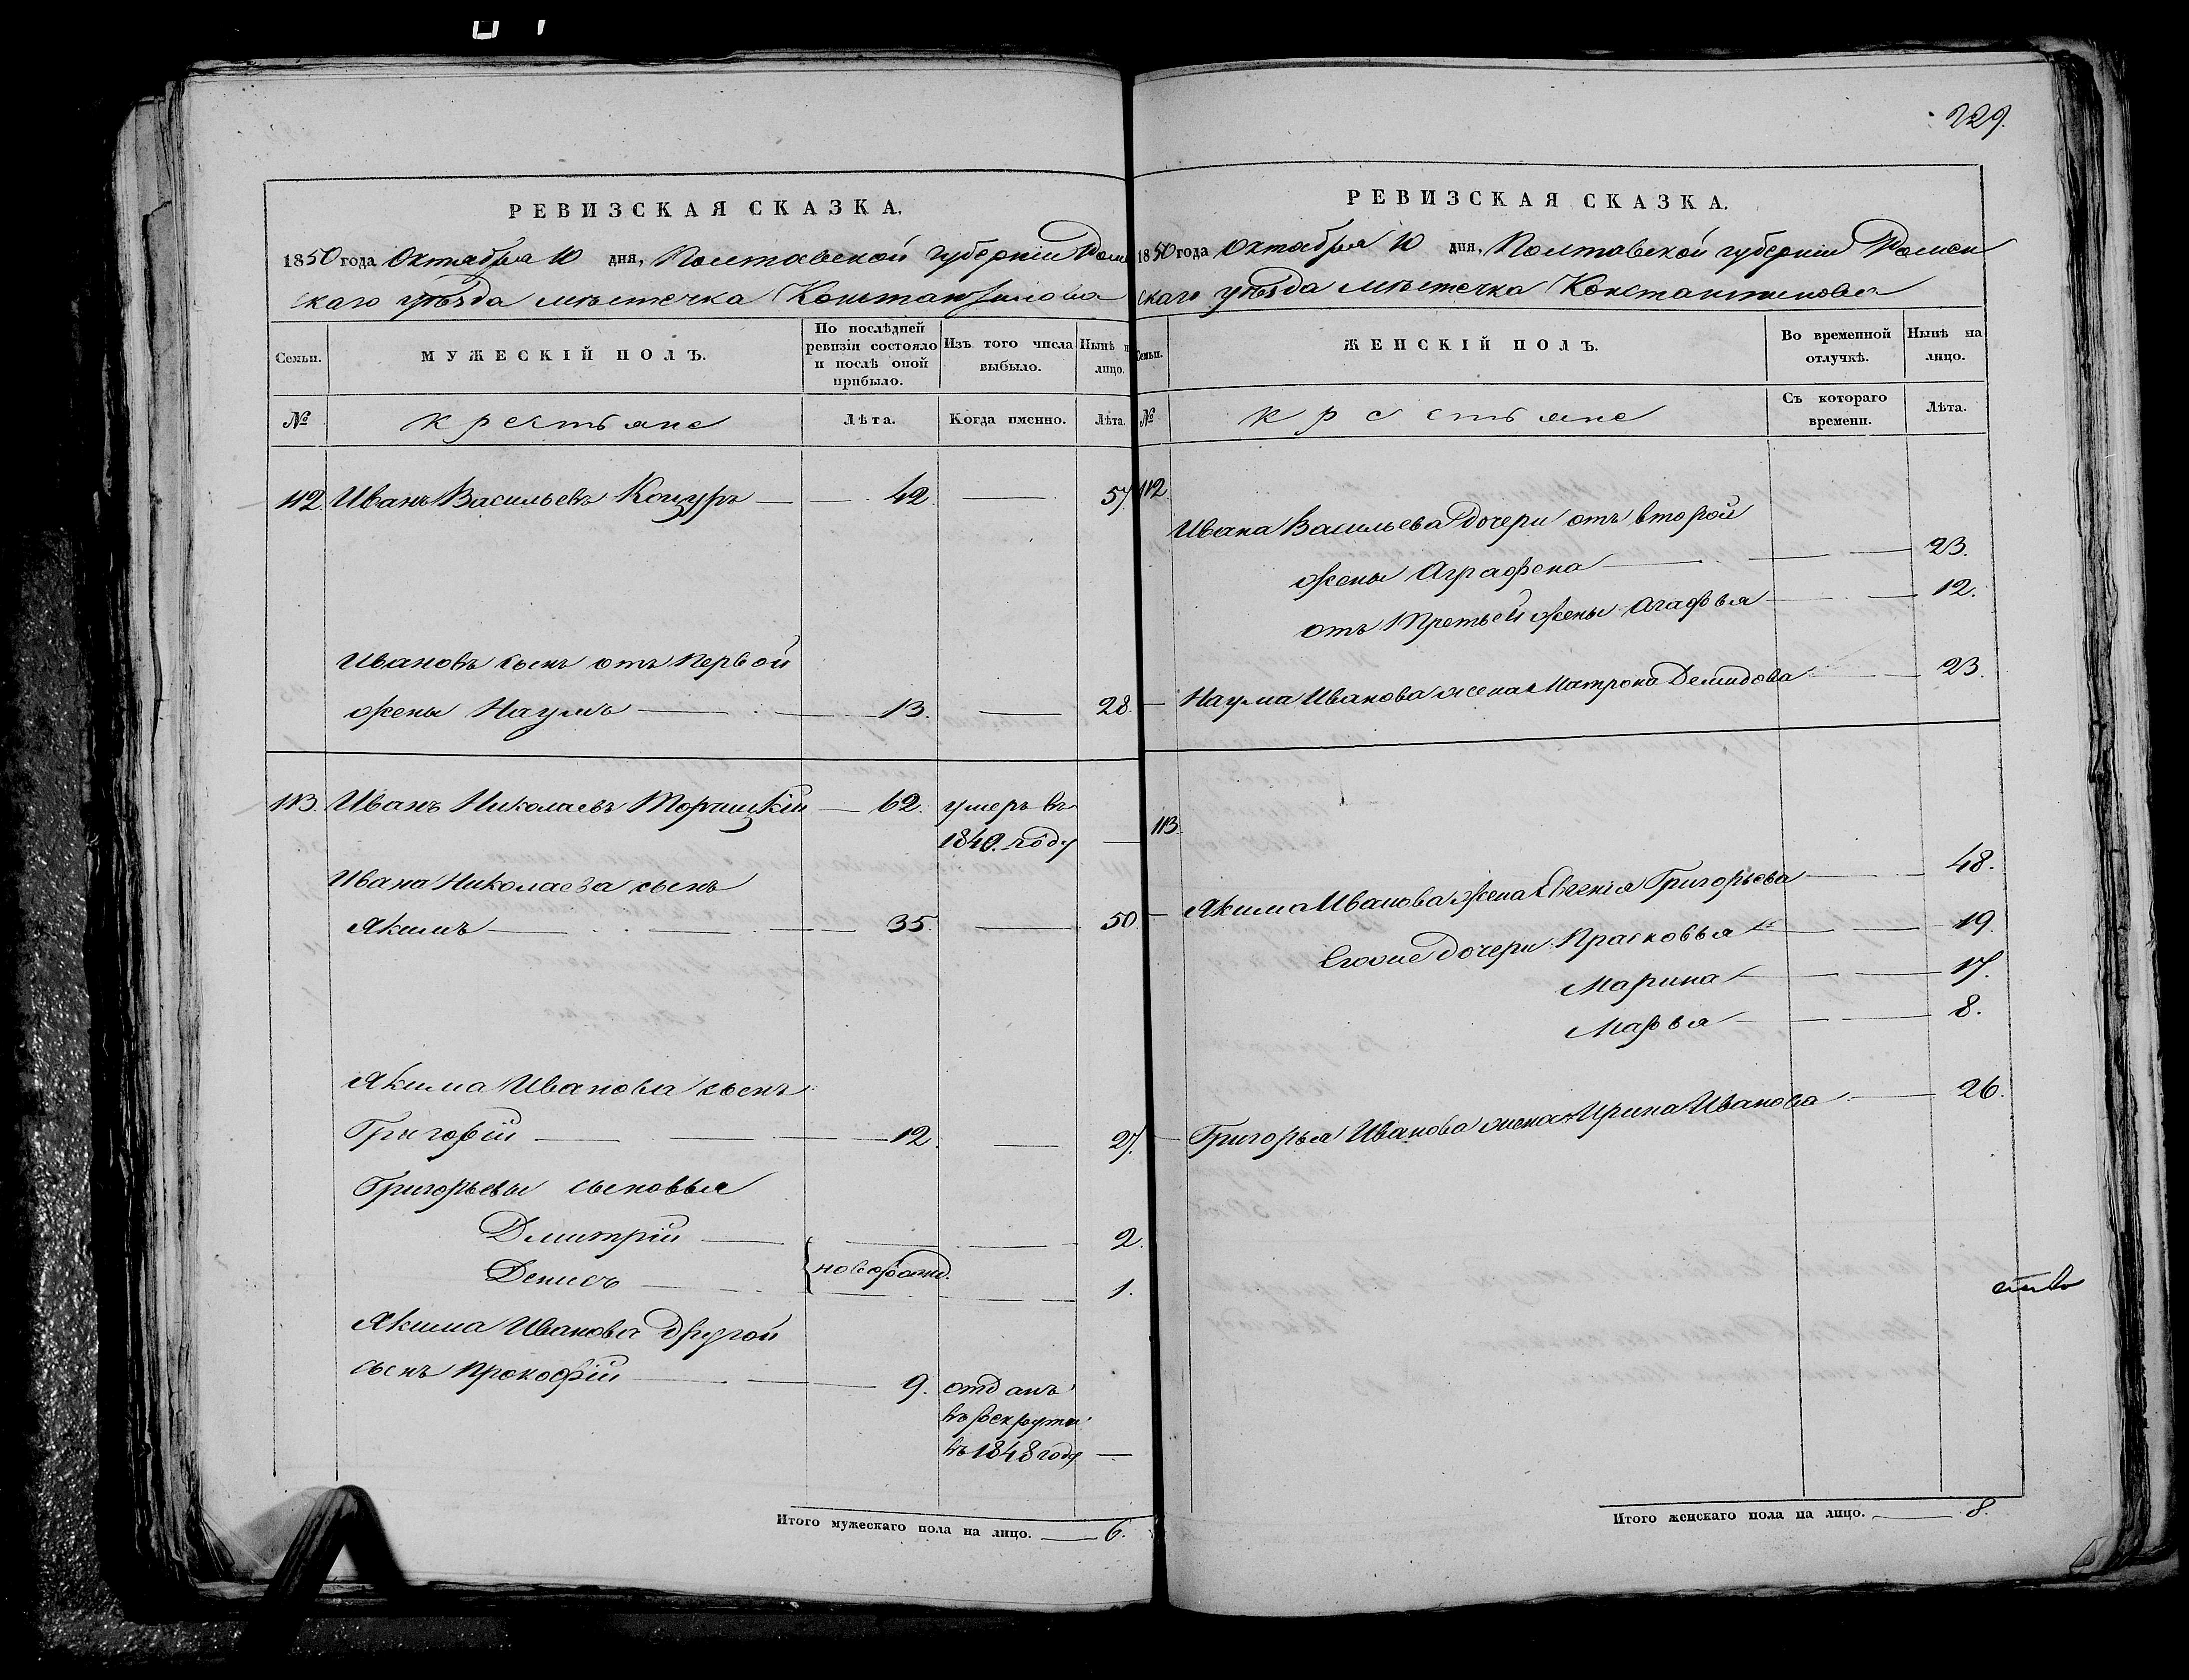 РЕВИЗСКАЯ СКАЗКА.
1850 года Октября 10 дня, Полтавской губерніи Ромен
скаго уѣзда мѣстечка Константинова
Семьи.
МУЖЕСКІЙ ПОЛЪ.
По послѣдней
ревизіи состояло
и послѣ оной
прибыло.
Изъ того числа
выбыло.
Нынѣ н
лицо.
№
крестьяне
Лѣта.
Когда именно.
Лѣта.
112. Иванъ Васильевъ Коцуръ — 42. — 57.
Ивановъ сынъ отъ первой
жены Наумъ — 13. — 28.
113. Иванъ Николаевъ — 62. умеръ въ
1840. году —
Ивана Николаева сынъ
Якимъ — 35. — 50
Якима Иванова сынъ
Григорій — 12. — 27.
Григорьевы сыновья
Дмитрій — 2.
Денисъ — новорожд. 1.
Якима Иванова другой
сынъ Прокофій — 9. отданъ
въ рекруты
въ 1848 году —
Итого мужескаго пола на лицо. — 6.
229.
РЕВИЗСКАЯ СКАЗКА.
1850 года Октября 10 дня, Полтавской губерніи Ромен
скаго уѣзда мѣстечка Константинова
Семьи.
ЖЕНСКІЙ ПОЛЪ.
Во временной
отлучкѣ.
Нынѣ на
лицо.
№
крестьяне
Съ котораго
времени.
Лѣта.
112.
Ивана Васильева дочери отъ второй
жены Аграфена — 23.
отъ третьей жены Агафья — 12.
Наума Иванова жена Матрона Демидова — 23.
113.
Якима Иванова жена Евгенія Григорьева — 48.
Егоже дочери: Прасковья — 19.
Марина — 17.
Марья — 8.
Григорья Иванова жена Ирина Иванова — 26.
Итого женскаго пола на лицо. — 8.